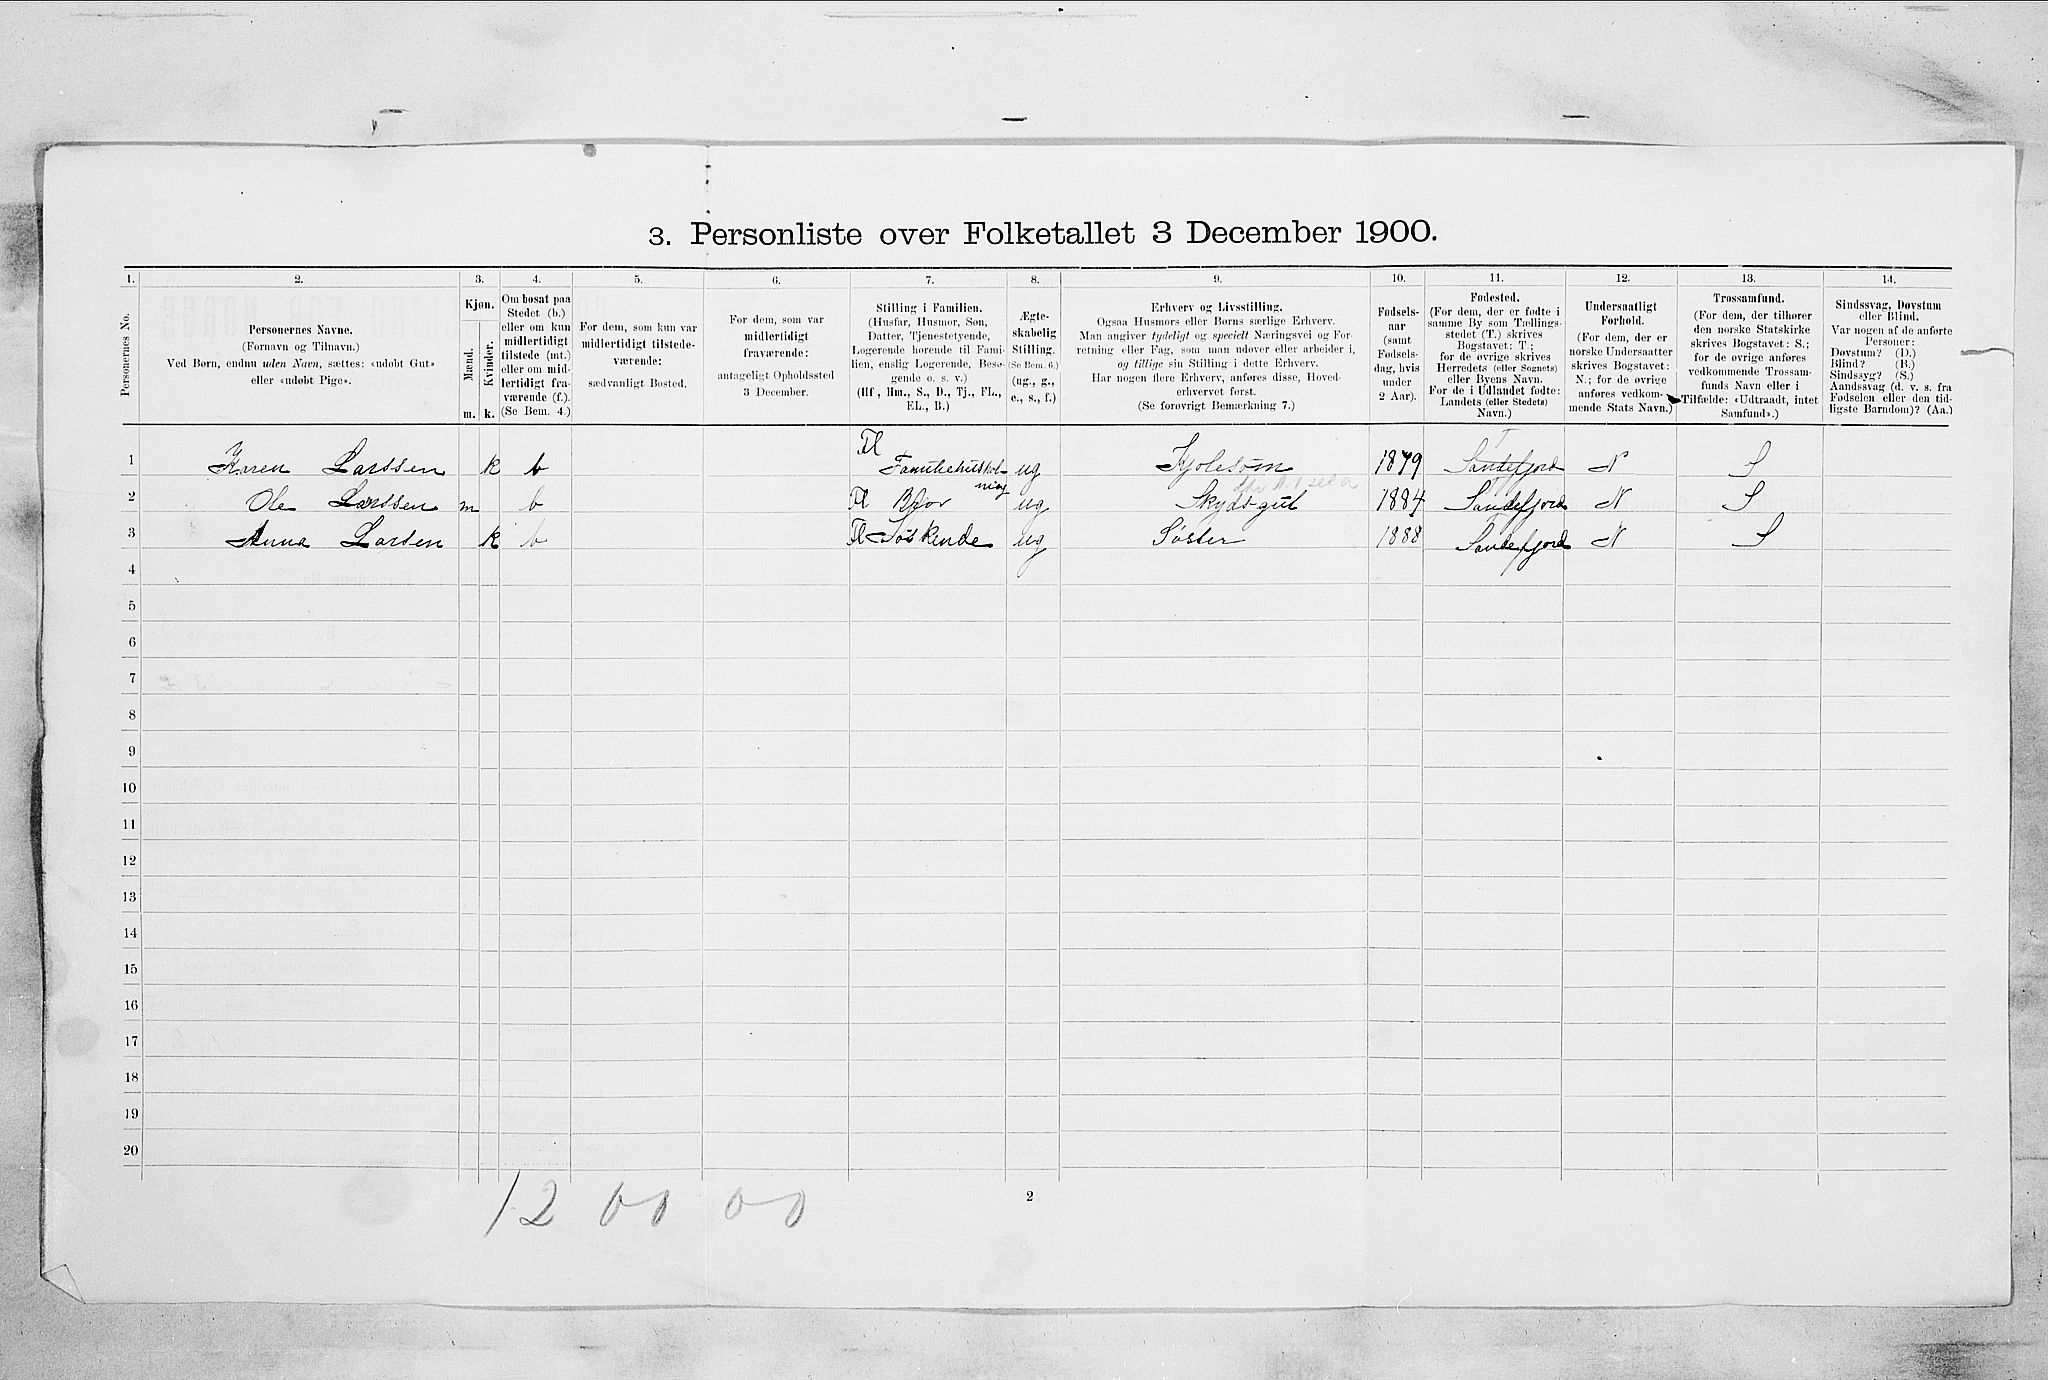 3. Personliste over Folketallet 3 December 1900.
1. 2. 3. 4. 5. 6. 7. 8. 9. 10. 11. 12. 13. 14.
Personernes No.
Personernes Navne.
(Fornavn og Tilnavn.)
Ved Børn, endnu uden Navn, sættes: «udøbt Gut»
eller «udøbt Pige».
Kjøn.
Mænd.
Kvinder.
m. k.
Om bosat paa
Stedet (b.)
eller om kun
midlertidigt
tilstede (mt.)
eller om mid-
lertidigt fra-
værende (f.).
(Se Bem. 4.)
For dem, som kun var
midlertidigt tilstede-
værende:
sædvanligt Bosted.
For dem, som var
midlertidigt
fraværende:
antageligt Opholdssted
3 December.
Stilling i Familien.
(Husfar, Husmor, Søn,
Datter, Tjenestetyende,
Logerende hørende til Fami-
lien, enslig Logerende, Besø-
gende o. s. v.)
(Hf., Hm., S., D., Tj., FL.,
EL., B.)
Ægte-
skabelig
Stilling.
(Se Bem. 6.)
(ug., g.,
e., s., f.)
Erhverv og Livsstilling.
Ogsaa Husmors eller Børns særlige Erhverv.
Man angiver tydeligt og specielt Næringsvei og For-
retning eller Fag, som man udøver eller arbeider i,
og tillige sin Stilling i dette Erhverv.
Har nogen flere Erhverv, anføres disse, Hoved-
erhvervet først.
(Se forøvrigt Bemærkning 7.)
Fødsels-
aar
(samt
Fødsels-
dag, hvis
under
2 Aar).
Fødested.
(For dem, der er fødte i
samme By som Tællings-
stedet (T.) skrives
Bogstavet: T;
for de øvrige skrives
Herredets (eller Sognets)
eller Byens Navn.
For de i Udlandet fødte:
Landets (eller Stedets)
Navn.)
Undersaatligt
Forhold.
(For dem, der er
norske Undersaatter
skrives Bogstavet:
N.; for de øvrige
anføres vedkom-
mende Stats Navn.)
Trossamfund.
(For dem, der tilhører
den norske Statskirke
skrives Bogstavet: S.;
for de øvrige anføres
vedkommende Trossam-
funds Navn eller i
Tilfælde: «Udtraadt, intet
Samfund».)
Sindssvag, Døvstum
eller Blind.
Var nogen af de anførte
Personer:
Døvstum? (D.)
Blind? (B.)
Sindssyg? (S.)
Aandssvag (d. v. s. fra
Fødselen eller den tid-
ligste Barndom)? (Aa.)
1 Karen Larssen k b Fl Familiehushol- ug Kjolesøm 1879 Sandefjord T N S
ning
2 Ole Larssen m b Fl Bror ug Skydsgut 1884 Sandefjord N S
3 Anna Larsen k b Fl Søskende ug Søster 1888 Sandefjord N S
4
5
6
7
8
9
10
11
12
13
14
15
16
17
18
19
20
12 00 00
2